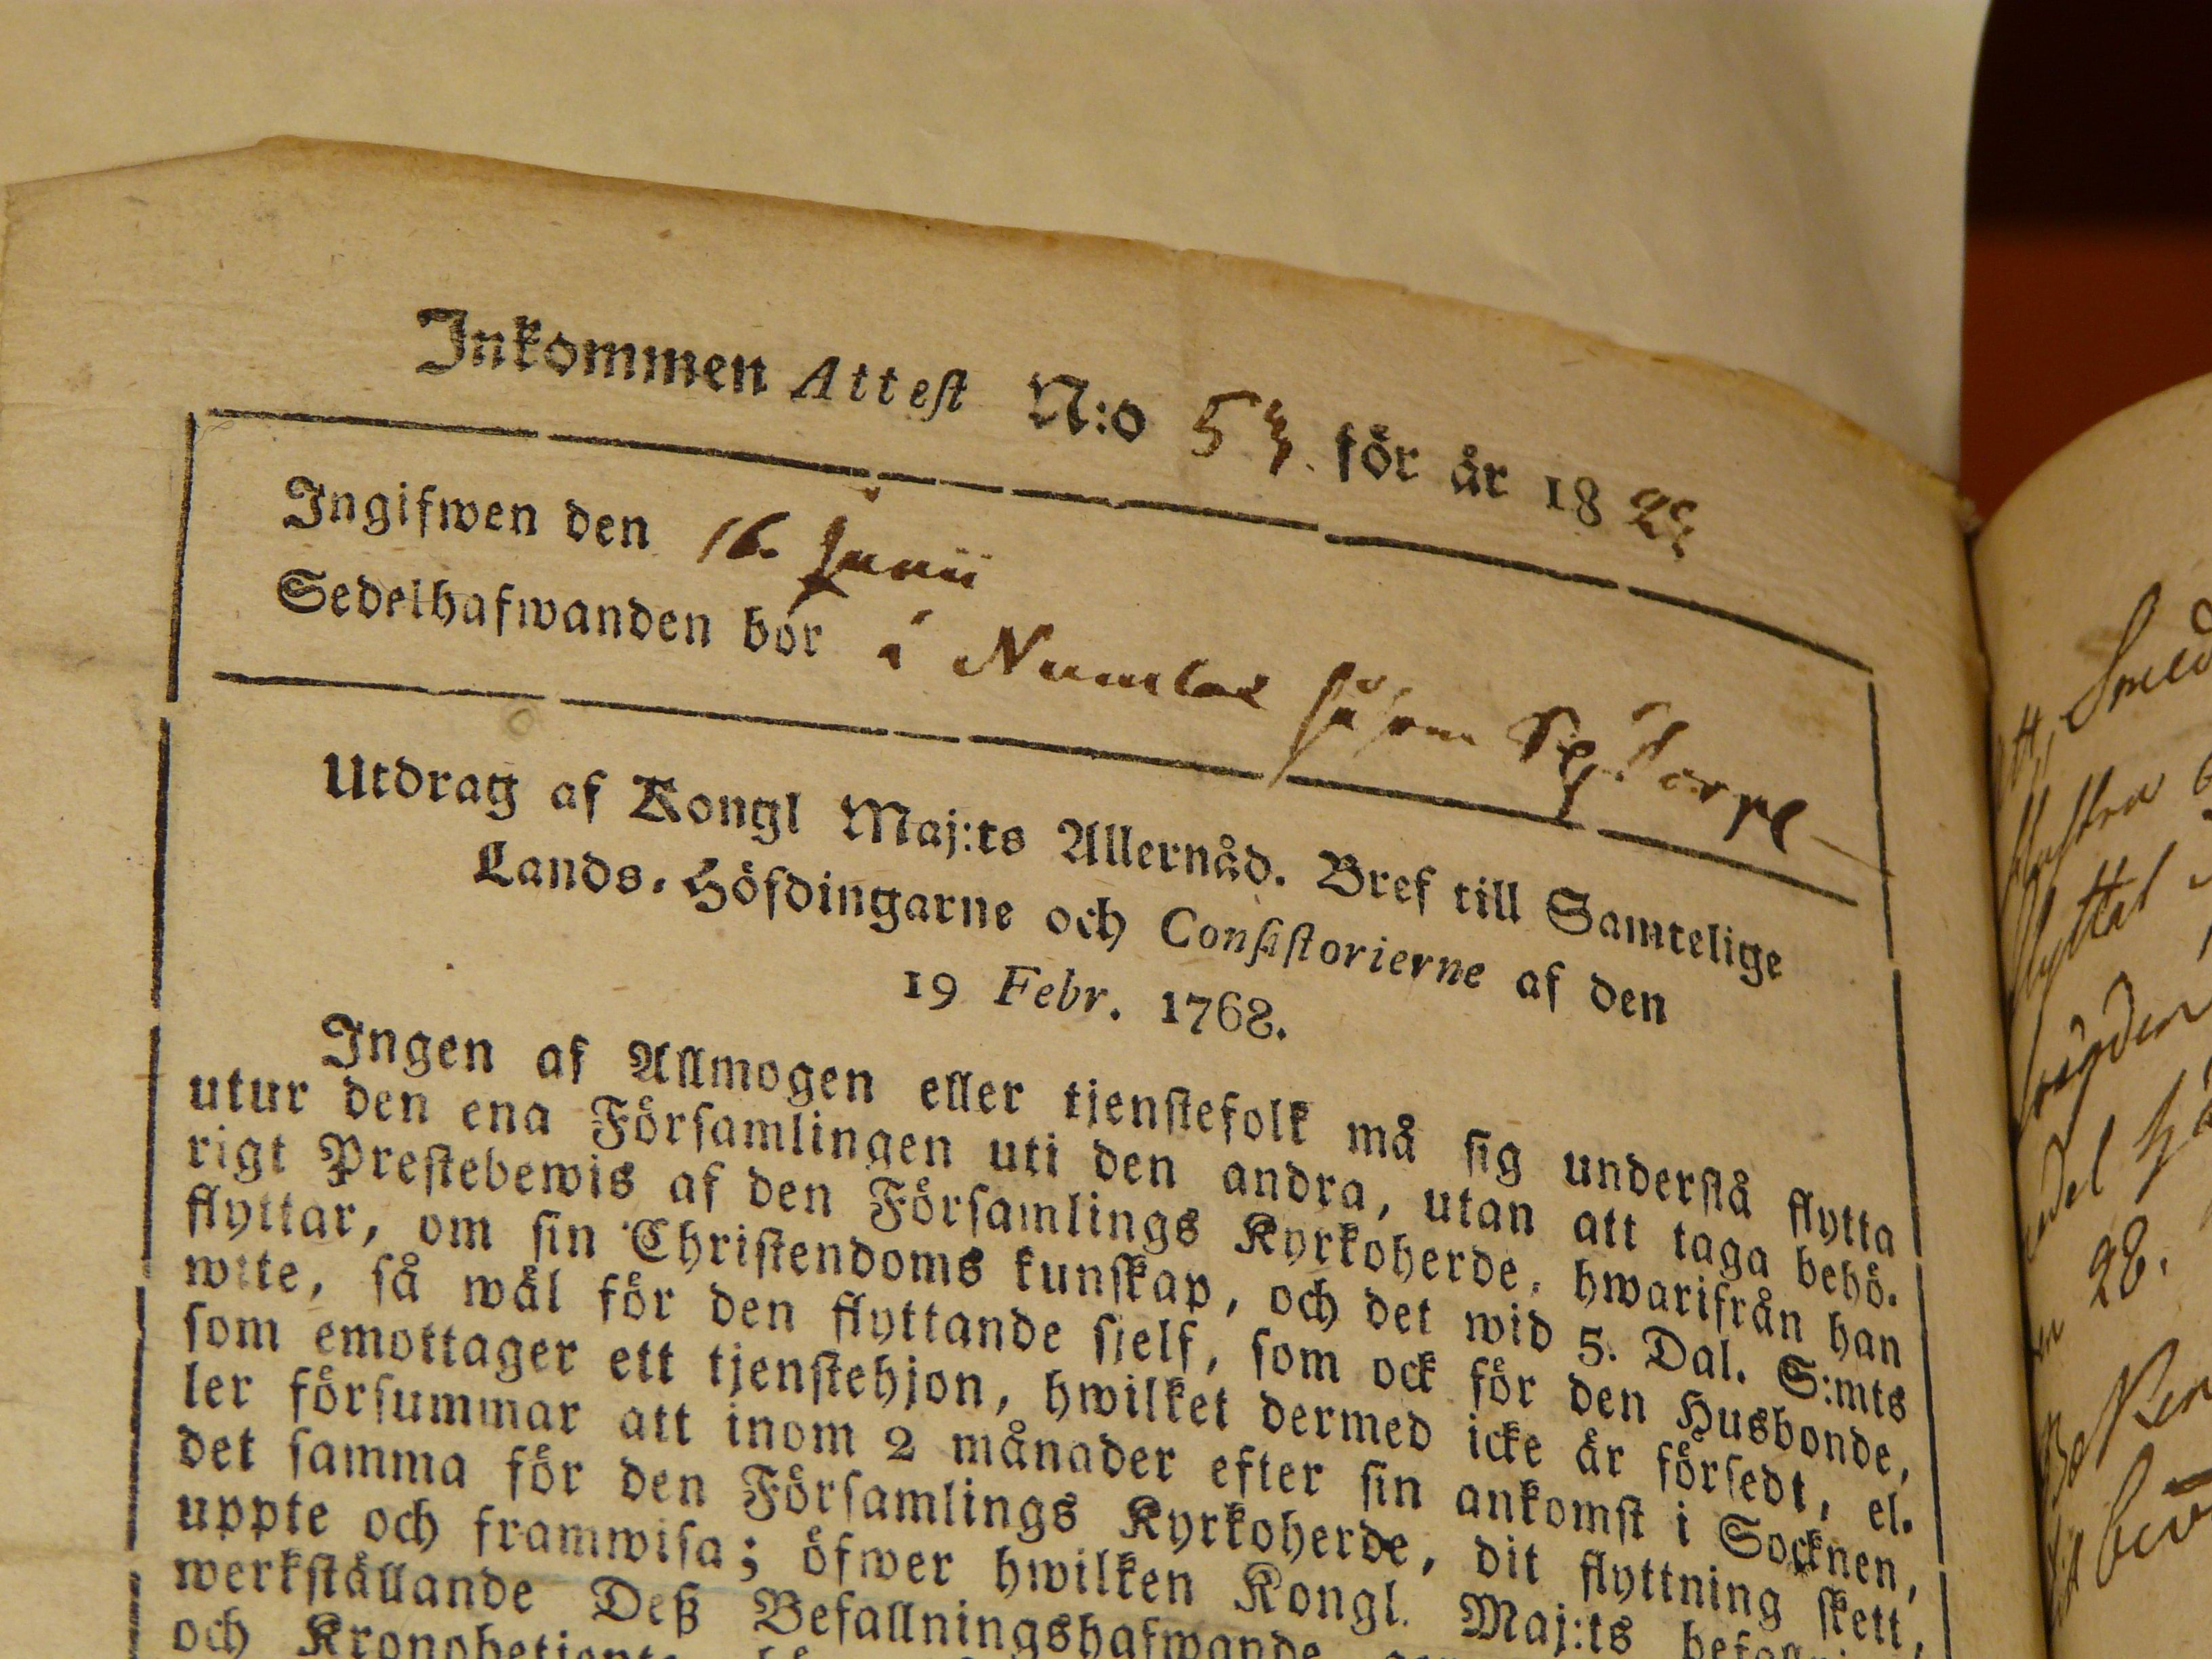 Inkommen Attest N:o 53. för år 18
Ingifwen den 16. Junii
Sedelhafwanden bor i såsom
Utdrag af Kongl Maj:ts Allernåd. Bref till Samtelige
Lands-Höfdingarne och Consistorierne af den
19 Febr. 1768.
Ingen af Allmogen eller tjenstefolk må sig understå flytta
utur den ena Församlingen uti den andra, utan att taga behö-
rigt Prestebewis af den Församlings Kyrkoherde, hwarifrån han
flyttar, om sin Christendoms kunskap, och det wid 5. Dal. S:mts
wite, så wäl för den flyttande sjelf, som ock för den Husbonde,
som emottager ett tjenstehjon, hwilket dermed icke är försedt, el-
ler försummar att inom 2 månader efter sin ankomst i Socknen,
det samma för den Församlings Kyrkoherde, dit flyttning skett,
uppte och framwisa; öfwer hwilken Kongl. Maj:ts
werkställande Deß Befallningshafwande
och
Smed
28.